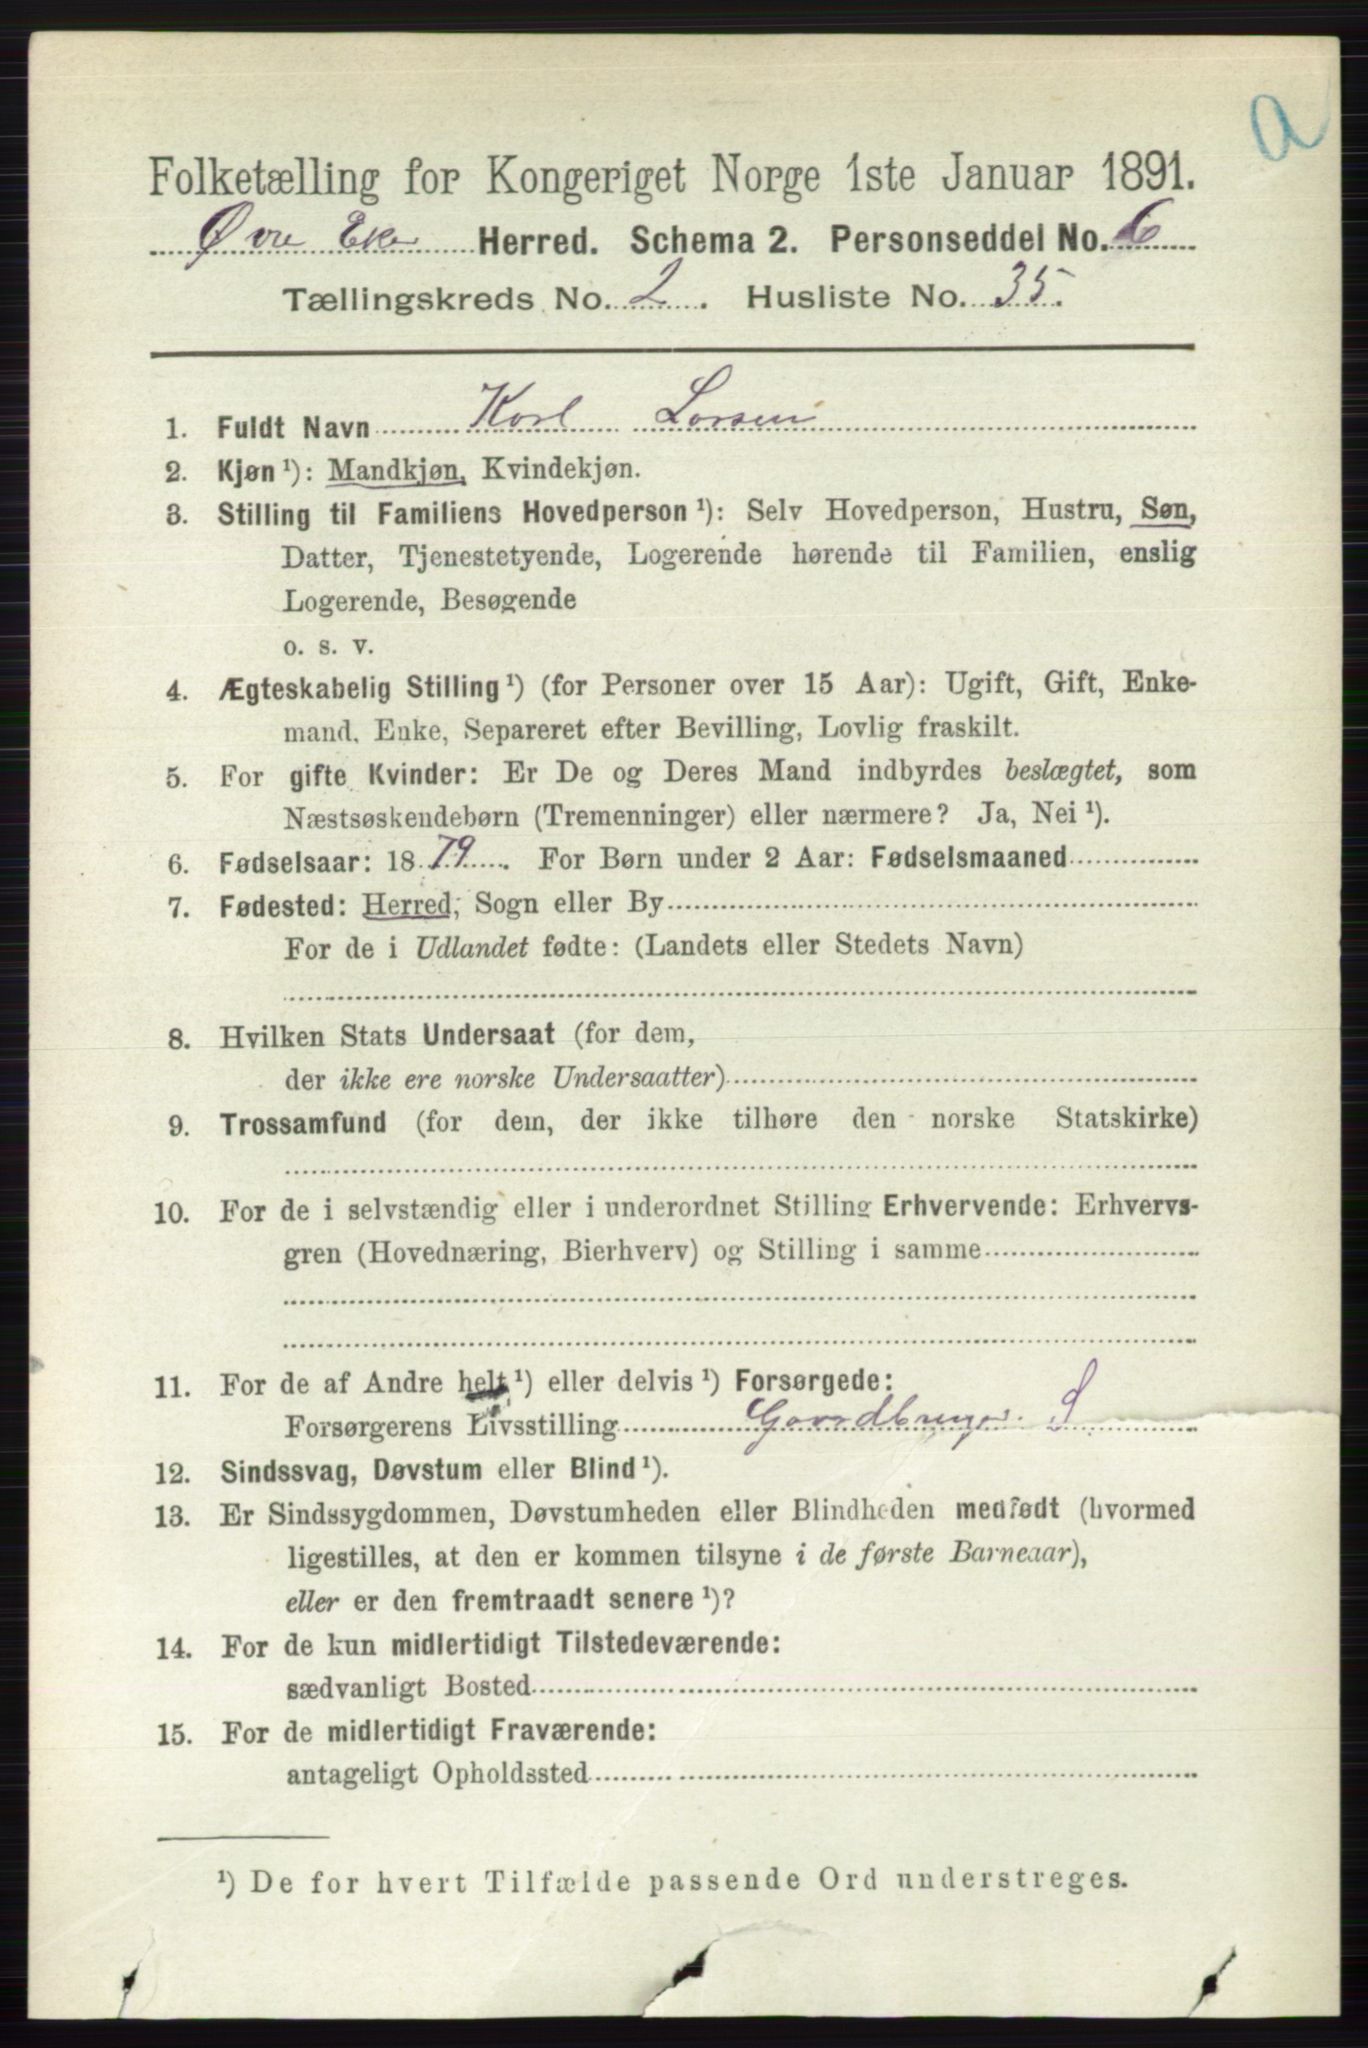 a
Folketælling for Kongeriget Norge 1ste Januar 1891.
Øvre Eker Herred. Schema 2. Personseddel No. 6
Tællingskreds No. 2. Husliste No. 35.
1. Fuldt Navn Karl Larsen
2. Kjøn ¹): Mandkjøn, Kvindekjøn.
3. Stilling til Familiens Hovedperson ¹): Selv Hovedperson, Hustru, Søn,
Datter, Tjenestetyende, Logerende hørende til Familien, enslig
Logerende, Besøgende
o. s. v.
4. Ægteskabelig Stilling ¹) (for Personer over 15 Aar): Ugift, Gift, Enke-
mand, Enke, Separeret efter Bevilling, Lovlig fraskilt.
5. For gifte Kvinder: Er De og Deres Mand indbyrdes beslægtet, som
Næstsøskendebørn (Tremenninger) eller nærmere? Ja, Nei ¹).
6. Fødselsaar: 1879. For Børn under 2 Aar: Fødselsmaaned
7. Fødested: Herred, Sogn eller By
For de i Udlandet fødte: (Landets eller Stedets Navn)
8. Hvilken Stats Undersaat (for dem,
der ikke ere norske Undersaatter)
9. Trossamfund (for dem, der ikke tilhøre den norske Statskirke)
10. For de i selvstændig eller i underordnet Stilling Erhvervende: Erhvervs-
gren (Hovednæring, Bierhverv) og Stilling i samme
11. For de af Andre helt ¹) eller delvis ¹) Forsørgede:
Forsørgerens Livsstilling Gaardbruger S
12. Sindssvag, Døvstum eller Blind ¹).
13. Er Sindssygdommen, Døvstumheden eller Blindheden medfødt (hvormed
ligestilles, at den er kommen tilsyne i de første Barneaar),
eller er den fremtraadt senere ¹)?
14. For de kun midlertidigt Tilstedeværende:
sædvanligt Bosted
15. For de midlertidigt Fraværende:
antageligt Opholdssted
¹) De for hvert Tilfælde passende Ord understreges.